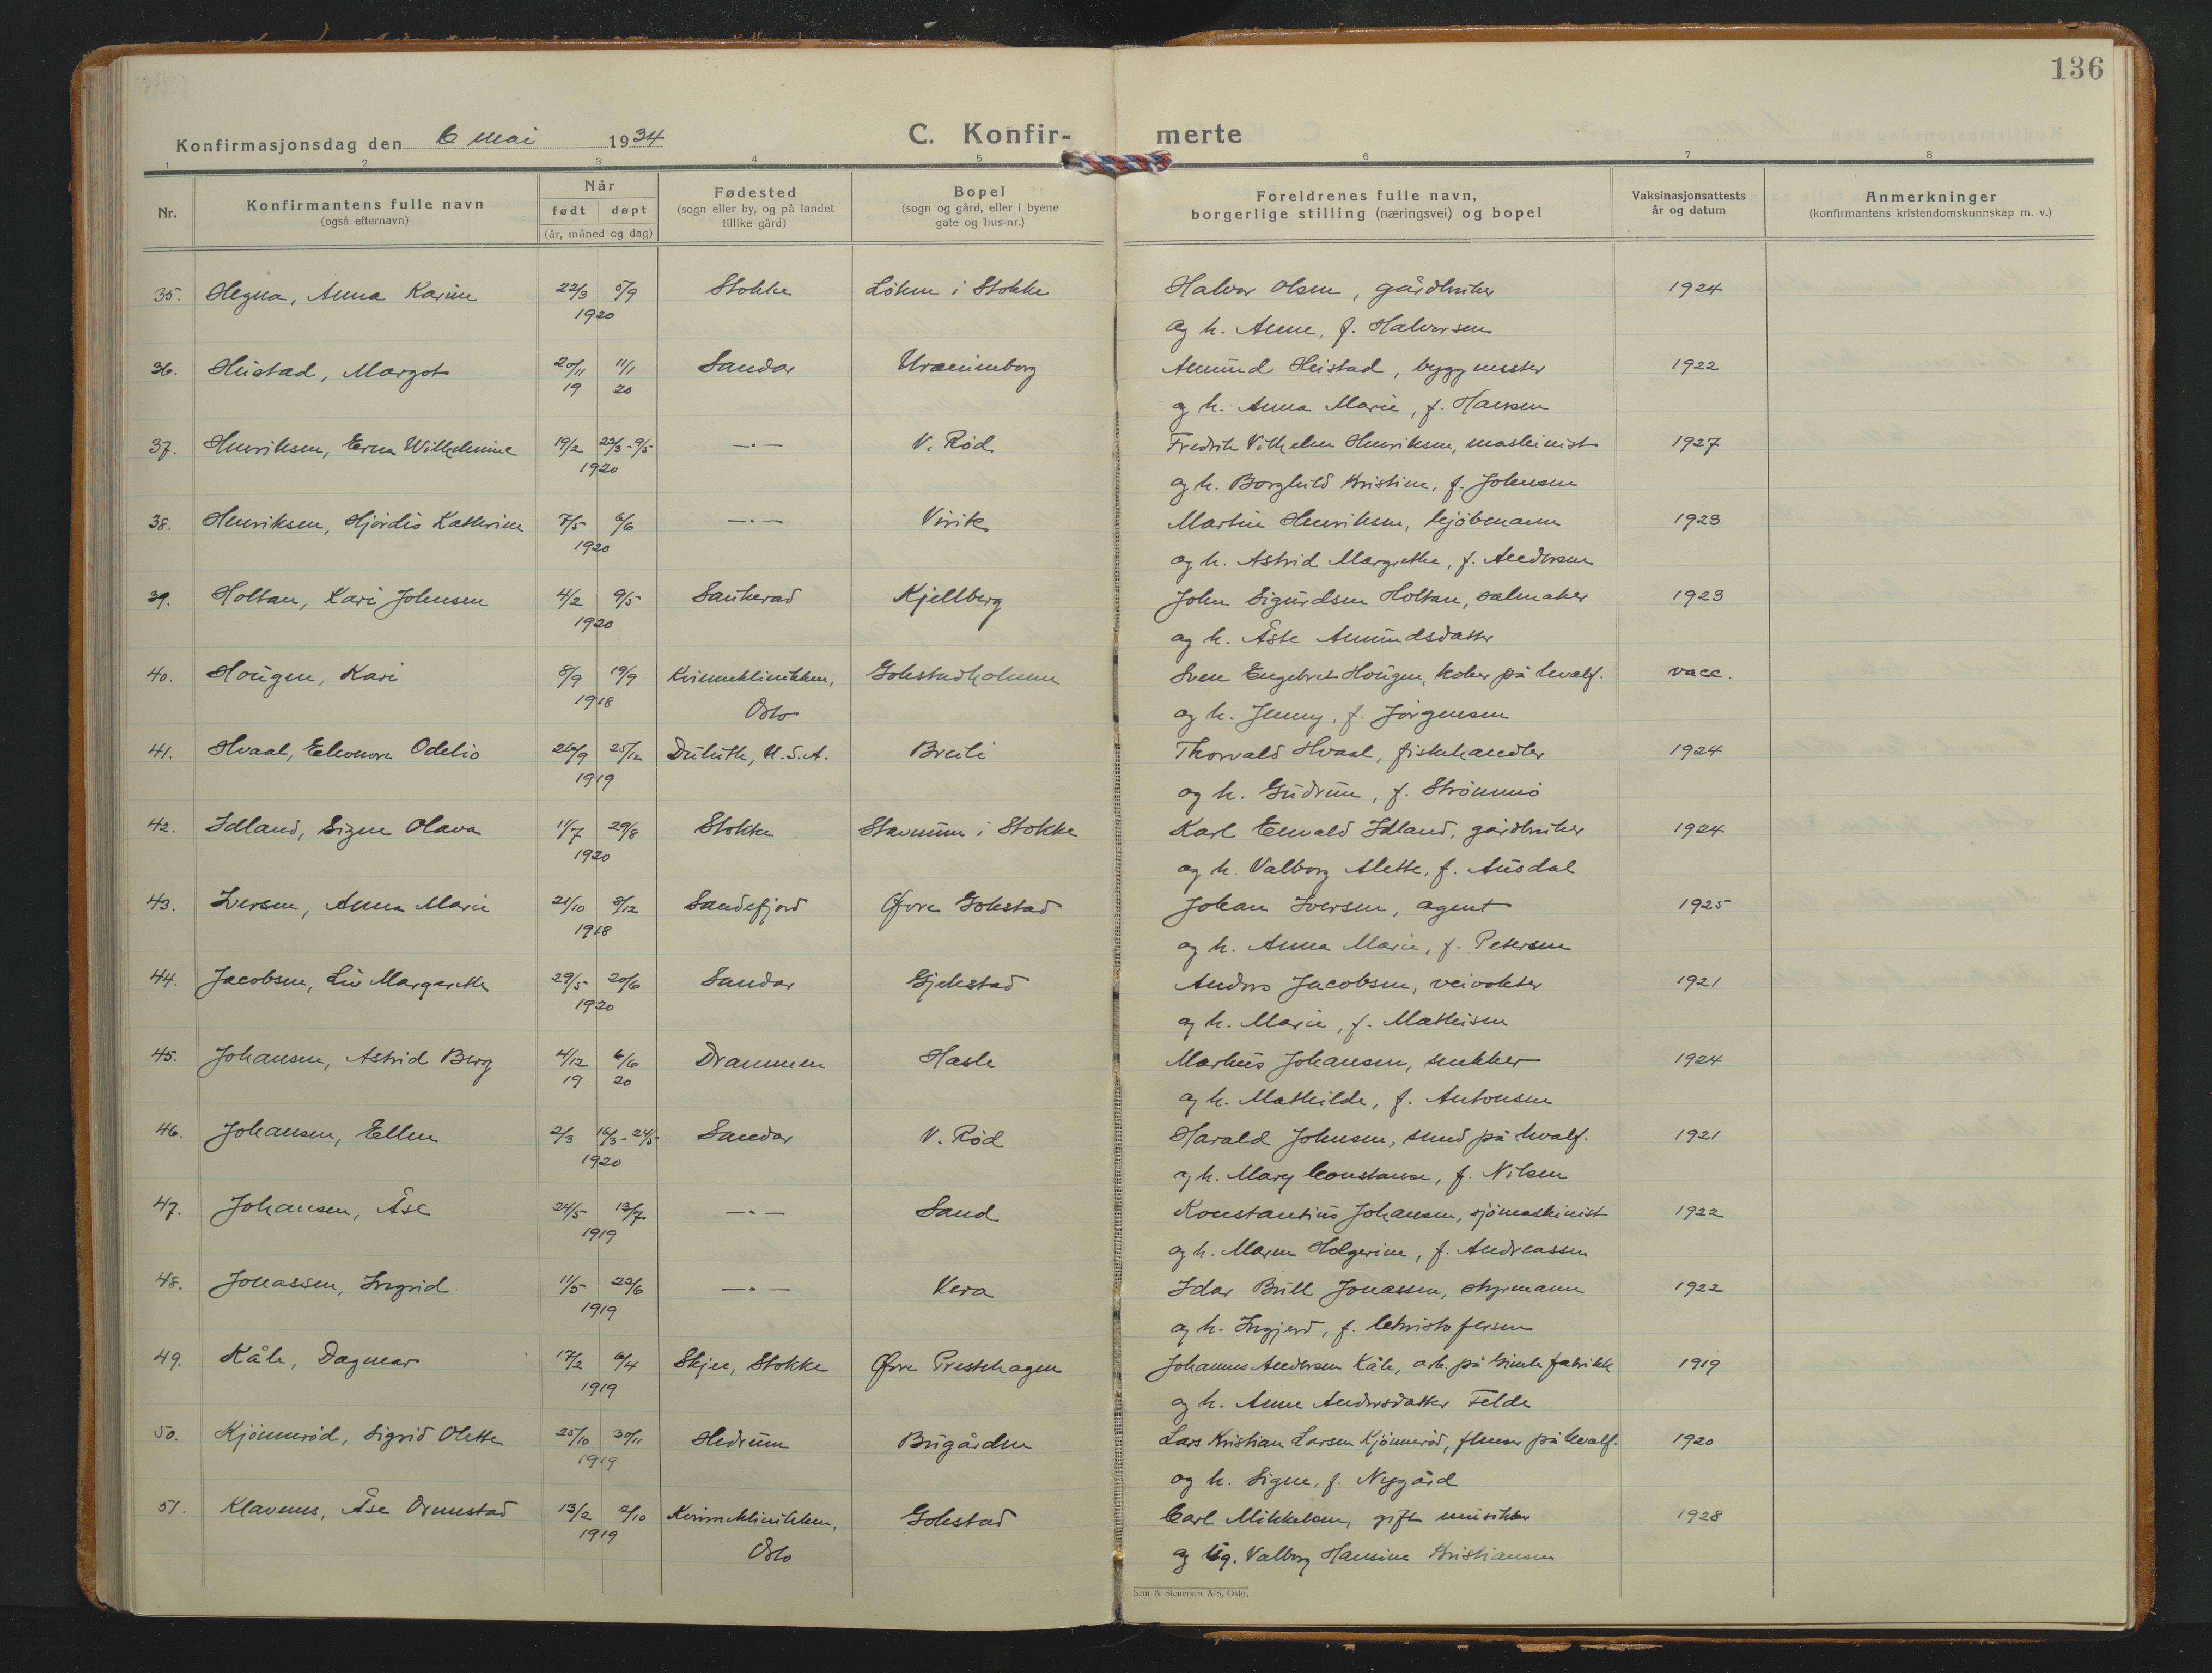 136
Konfirmasjonsdag den 6 mai 1934
C. Konfir- merte
1 2 3 4 5 6 7 8
Nr.
Konfirmantens fulle navn
(også efternavn)
Når
født døpt
(år, måned og dag)
Fødested
(sogn eller by, og på landet
tillike gård)
Bopel
(sogn og gård, eller i byene
gate og hus-nr.)
Foreldrenes fulle navn,
borgerlige stilling (næringsvei) og bopel
Vaksinasjonsattests
år og datum
Anmerkninger
(konfirmantens kristendomskunnskap m. v.)
35. Hegna, Anna Karine 22/3 5/9 Stokke Løken i Stokke Halvor Olsen, gårdbruker 1924
1920 og h. Anne, f. Halvorsen
36. Heistad, Margot 20/11 11/1 Sandar Uranienborg Amund Heistad, byggmester 1922
19 20 og h. Anna Marie, f. Hansen
37. Henriksen, Erna Wilhelmine 19/2 22/3-9/5 —·— V. Rød Fredrik Vilhelm Henriksen, maskinist 1927
1920 og h. Borghild Kristine, f. Johnsen
38. Henriksen, Hjördis Kathrine 7/5 6/6 —·— Virik Martin Henriksen, kjöbmann 1923
1920 og h. Astrid Margrethe, f. Andersen
39. Holtan, Kari Johnsen 4/2 9/5 Sauherad Kjellberg John Sigurdsen Holtan, salmaker 1923
1920 og h. Åste Amundsdatter
40. Hougen, Kari 8/9 19/9 Kvinneklinikken, Gokstadholmen Sven Engebret Hougen, koker på hvalf. vacc.
1918 Oslo og h. Jenny, f. Jörgensen
41. Hvaal, Eleonora Odelio 26/9 25/12 Duluth, U.S.A. Breili Thorvald Hvaal, fiskehandler 1924
1919 og h. Gudrun, f. Strömmö
42. Idland, Signe Olava 11/7 29/8 Stokke Stavnum i Stokke Karl Enevald Idland, gårdbruker 1924
1920 og h. Valborg Alette, f. Ausdal
43. Iversen, Anna Marie 21/10 8/12 Sandefjord Øvre Gokstad Johan Iversen, agent 1925
1918 og h. Anna Marie, f. Petersen
44. Jacobsen, Liv Margarethe 29/5 20/6 Sandar Gjekstad Anders Jacobsen, veivokter 1921
1920 og h. Marie, f. Mathisen
45. Johansen, Astrid Berg 4/12 6/6 Drammen Hasle Markus Johansen, snekker 1924
19 20 og h. Mathilde, f. Antonsen
46. Johansen, Ellen 2/3 16/3-24/5 Sandar V. Rød Harald Johnsen, smed på hvalf. 1921
1920 og h. Mary Constanse, f. Nilsen
47. Johansen, Åse 24/5 13/7 —·— Sand Konstantius Johansen, sjömaskinist 1922
1919 og h. Maren Holgerine, f. Andreassen
48. Jonassen, Ingrid 11/5 22/6 —·— Vera Idar Bull Jonassen, styrmann 1922
1919 og h. Ingjerd, f. Christofersen
49. Kåle, Dagmar 17/2 6/4 Skjee, Stokke Øvre Prestehagen Johannes Andersen Kåle, arb. på Gimle fabrikk 1919
1919 og h. Anne Andersdatter Felde
50. Kjönnerød, Sigrid Olette 25/10 30/11 Hedrum Bugården Lars Kristian Larsen Kjönnerød, flenser på hvalf. 1920
1919 og h. Signe, f. Nygård
51. Klavenes, Åse Ormestad 13/2 2/10 Kvinneklinikken, Gokstad Carl Mikkelsen, gift musiker 1928
1919 Oslo og ug. Valborg Hansine Kristiansen
Sem & Stenersen A/S, Oslo.